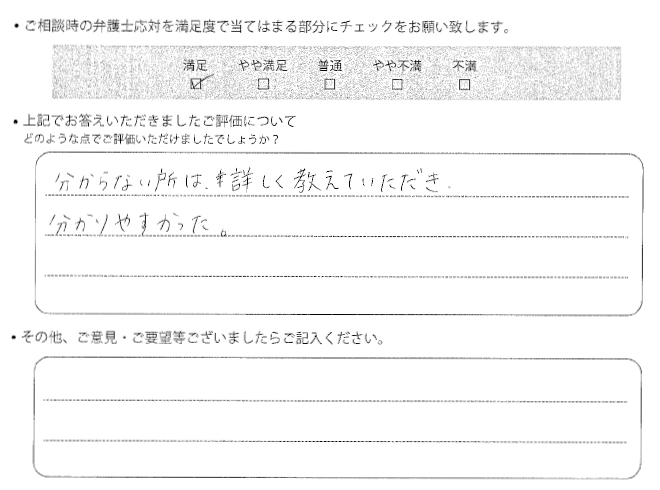 ・ご相談時の弁護士応対を満足度で当てはまる部分にチェックをお願い致します。
満足 やや満足 普通 やや不満 不満
☑ □ □ □ □
・上記でお答えいただきましたご評価について
どのような点でご評価いただけましたでしょうか？
分からない所は、詳しく教えていただき、
分かりやすかった。
・その他、ご意見・ご要望等ございましたらご記入ください。